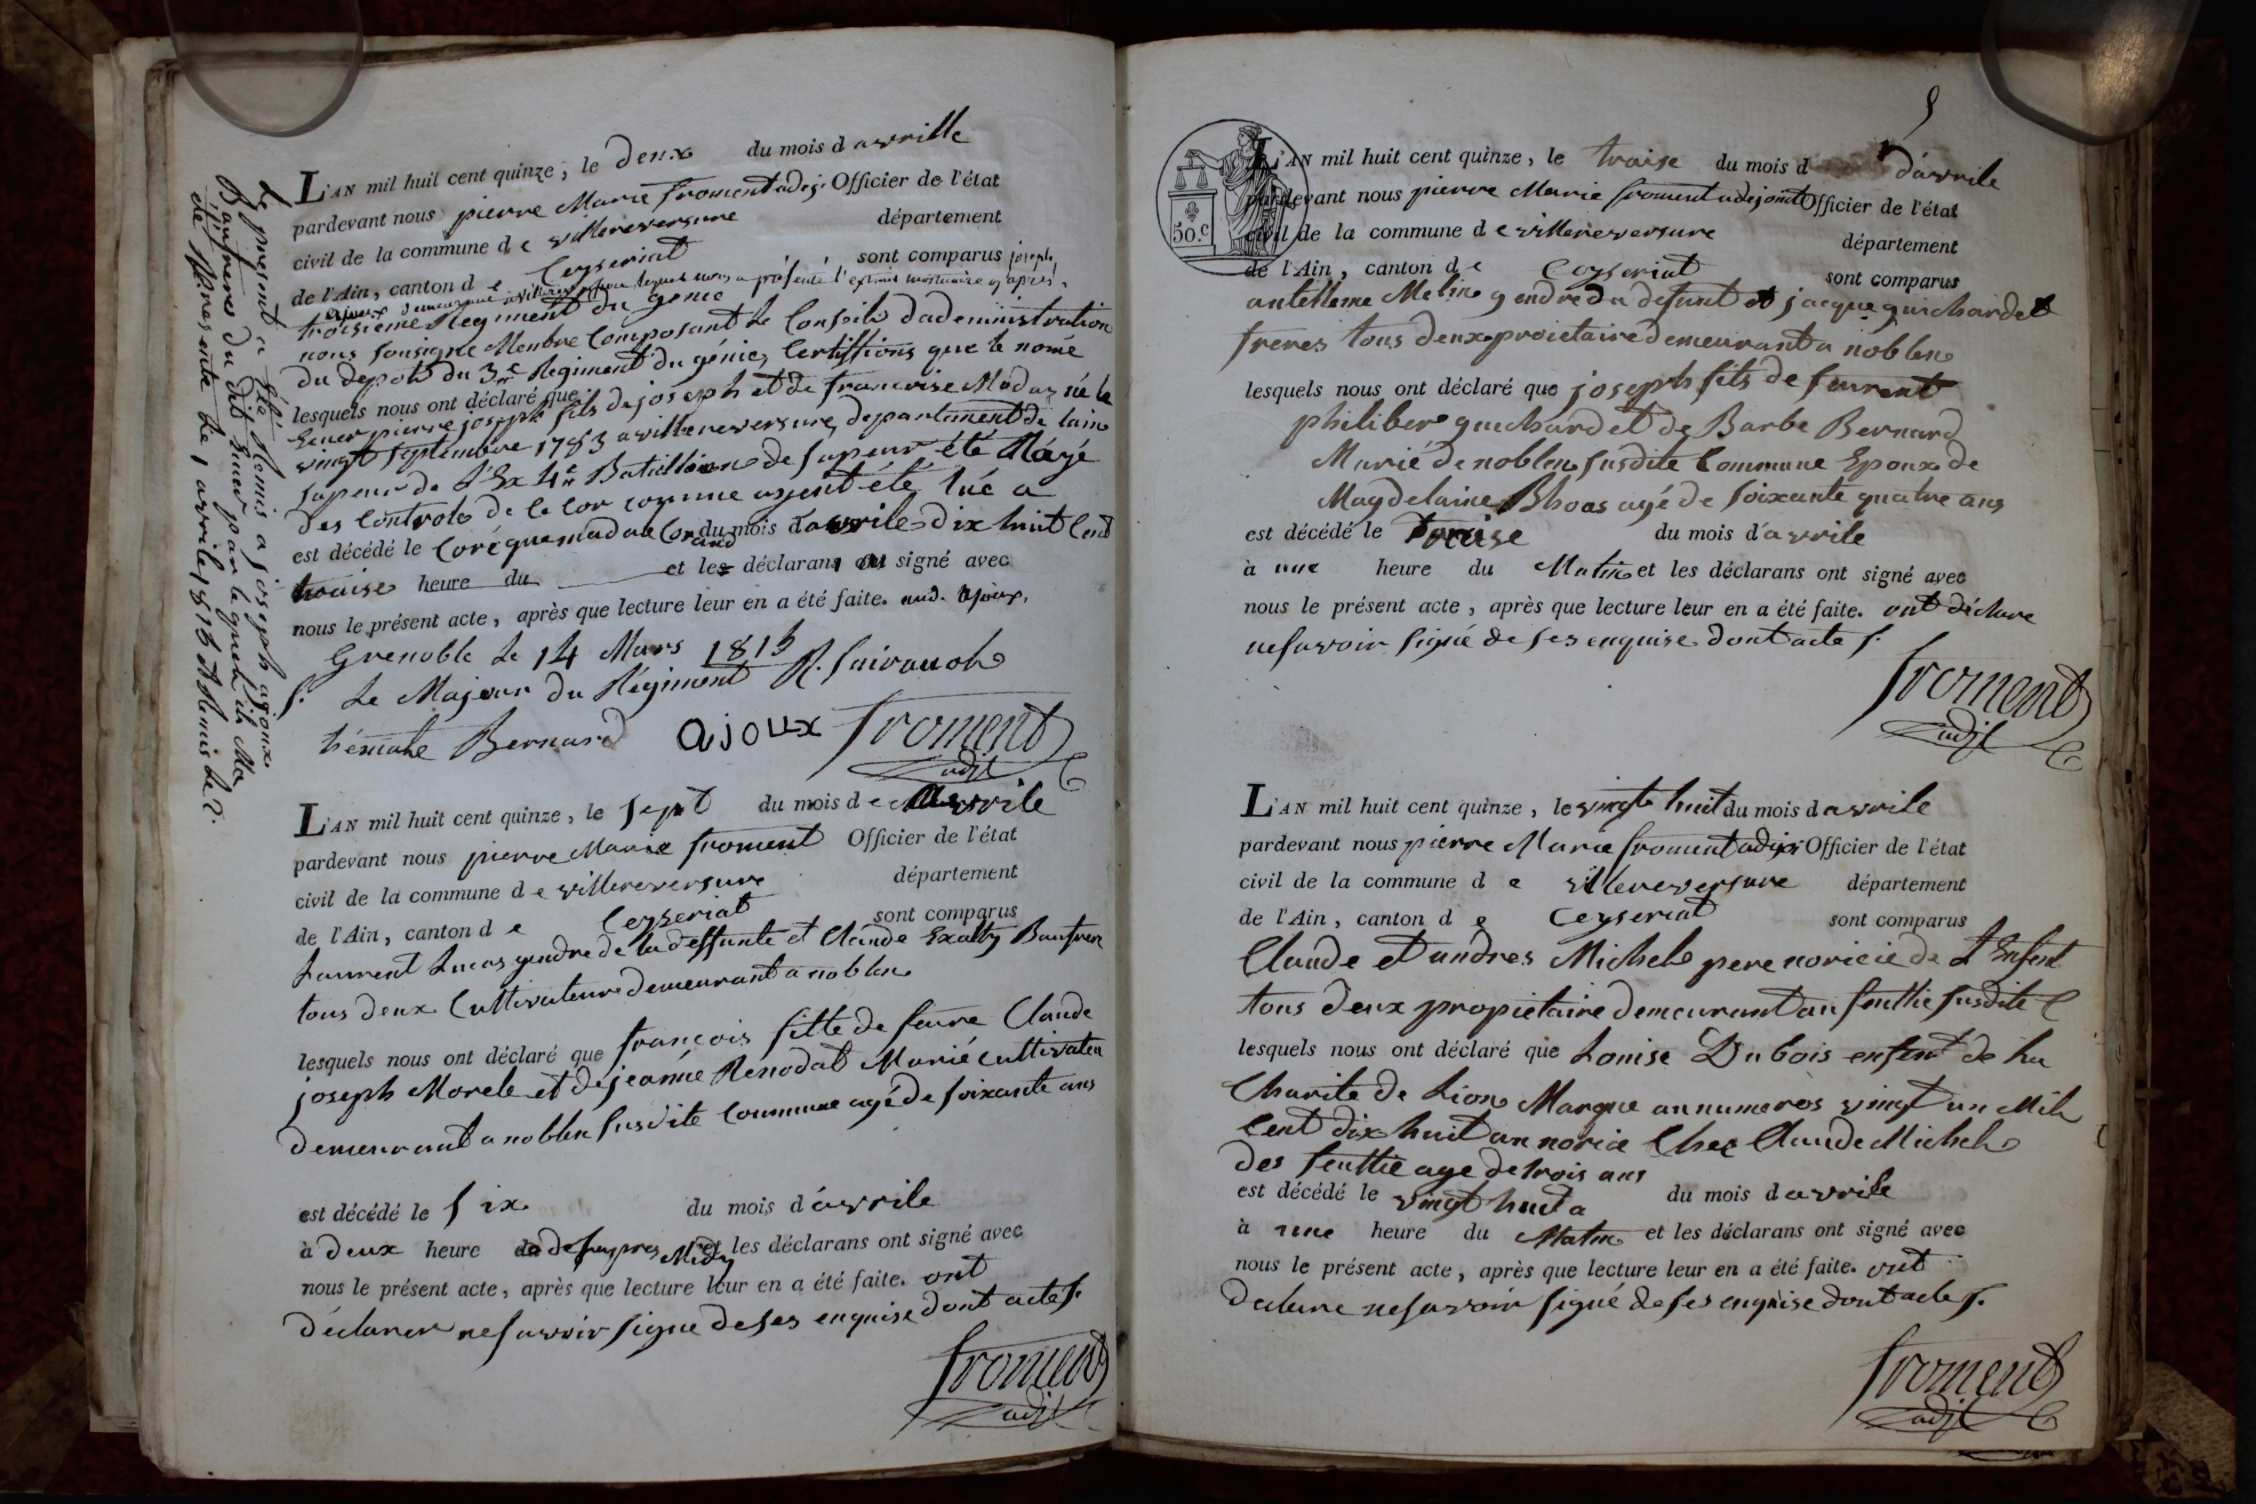 L'AN mil huit cent quinze, le deux du mois d avrille
pardevant nous pierre Marie froment adej. Officier de l'état
civil de la commune d e villereversure département
de l'Ain, canton d e Ceyseriat sont comparus joseph
ajoux demeurant a villereversure lequel nous a présenté l'extrait mortuaire cy apres.
troisieme Regiment du genie
nous sousigne Menbre Composant le Conseile dadeministration
du depots du 3me Regiment du génie, Certiffions que le nomé
lesquels nous ont déclaré que
pierre joseph fils de joseph et de francoise né le
vingt septembre 1783 a villereversure, departement de lain
sapeur de d'Ex 4e Bataillione de sapeur été Rayé
des Controle de ce Cor comme ayent été tué a
est décédé le du mois d'avrile dix huit Cent
traise heure du et les déclarans ont signé avec
nous le présent acte, après que lecture leur en a été faite.
Grenoble le 14 Mars 1815
s. Le Majeur du Régiment
Bernard ajoux froment
adjt
Le present a été Remis a joseph ajoux
Baufrere du dit par le quel il Ma
été présenté le 1 avrile 1815 et Remis le 2.
L'AN mil huit cent quinze, le sept du mois d e Avvrile
pardevant nous pierre Marie froment Officier de l'état
civil de la commune d e villereversure département
de l'Ain, canton d e Ceyseriat sont comparus
Laurent Lucas gendre de la deffunte et Claude Baufrere
tous deux Cultivateure demeurant a noblen
lesquels nous ont déclaré que françois fille de feure Claude
joseph Morele et de jeanne Renodat Marié cultivateu
demeurant a noblen susdite Commune agé de soixante ans
est décédé le six du mois d'avvrile
à deux heure de apres Midy et les déclarans ont signé avec
nous le présent acte, après que lecture leur en a été faite. ont
déclarer ne savoir signe de ses enquise dont acte s.
froment
adjt
50.c
L'AN mil huit cent quinze, le traise du mois d d'avvrile
pardevant nous pierre Marie froment adejoint Officier de l'état
civil de la commune d e villereversure département
de l'Ain, canton d e Ceyseriat sont comparus
antelleme Meline gendre du defunt et jacque guichardet
freres tous deux proietaire demeurant a noblen
lesquels nous ont déclaré que joseph fils de feurent
philiber guichard et de Barbe Bernard
Marié de noblen susdite Commune Epoux de
Magdelaine Bhoas agé de soixante quatre ans
est décédé le traise du mois d'avvrile
à une heure du Matin et les déclarans ont signé avec
nous le présent acte, après que lecture leur en a été faite. ont déclare
ne savoir signé de ses enquise dont acte s.
froment
adjt
L'AN mil huit cent quinze, le vingt huit du mois d avvrile
pardevant nous pierre Marie froment Officier de l'état
civil de la commune d e villereversure département
de l'Ain, canton d e Ceyseriat sont comparus
Claude et andres Michele pere noricie de L'Enfent
tous deux propietaire demeurant au feuttie susdite C
lesquels nous ont déclaré que Louise Dubois enfent de la
Charite de Lion Marque au numeros vingt un Mile
Cent dix huit an norice Chec Claude Michele
des feuttie age de trois ans
est décédé le vingt huit a du mois d avvrile
à une heure du Matin et les déclarans ont signé avec
nous le présent acte, après que lecture leur en a été faite. ont
declare ne savoir signé de ses enquise dont acte s.
froment
adjt